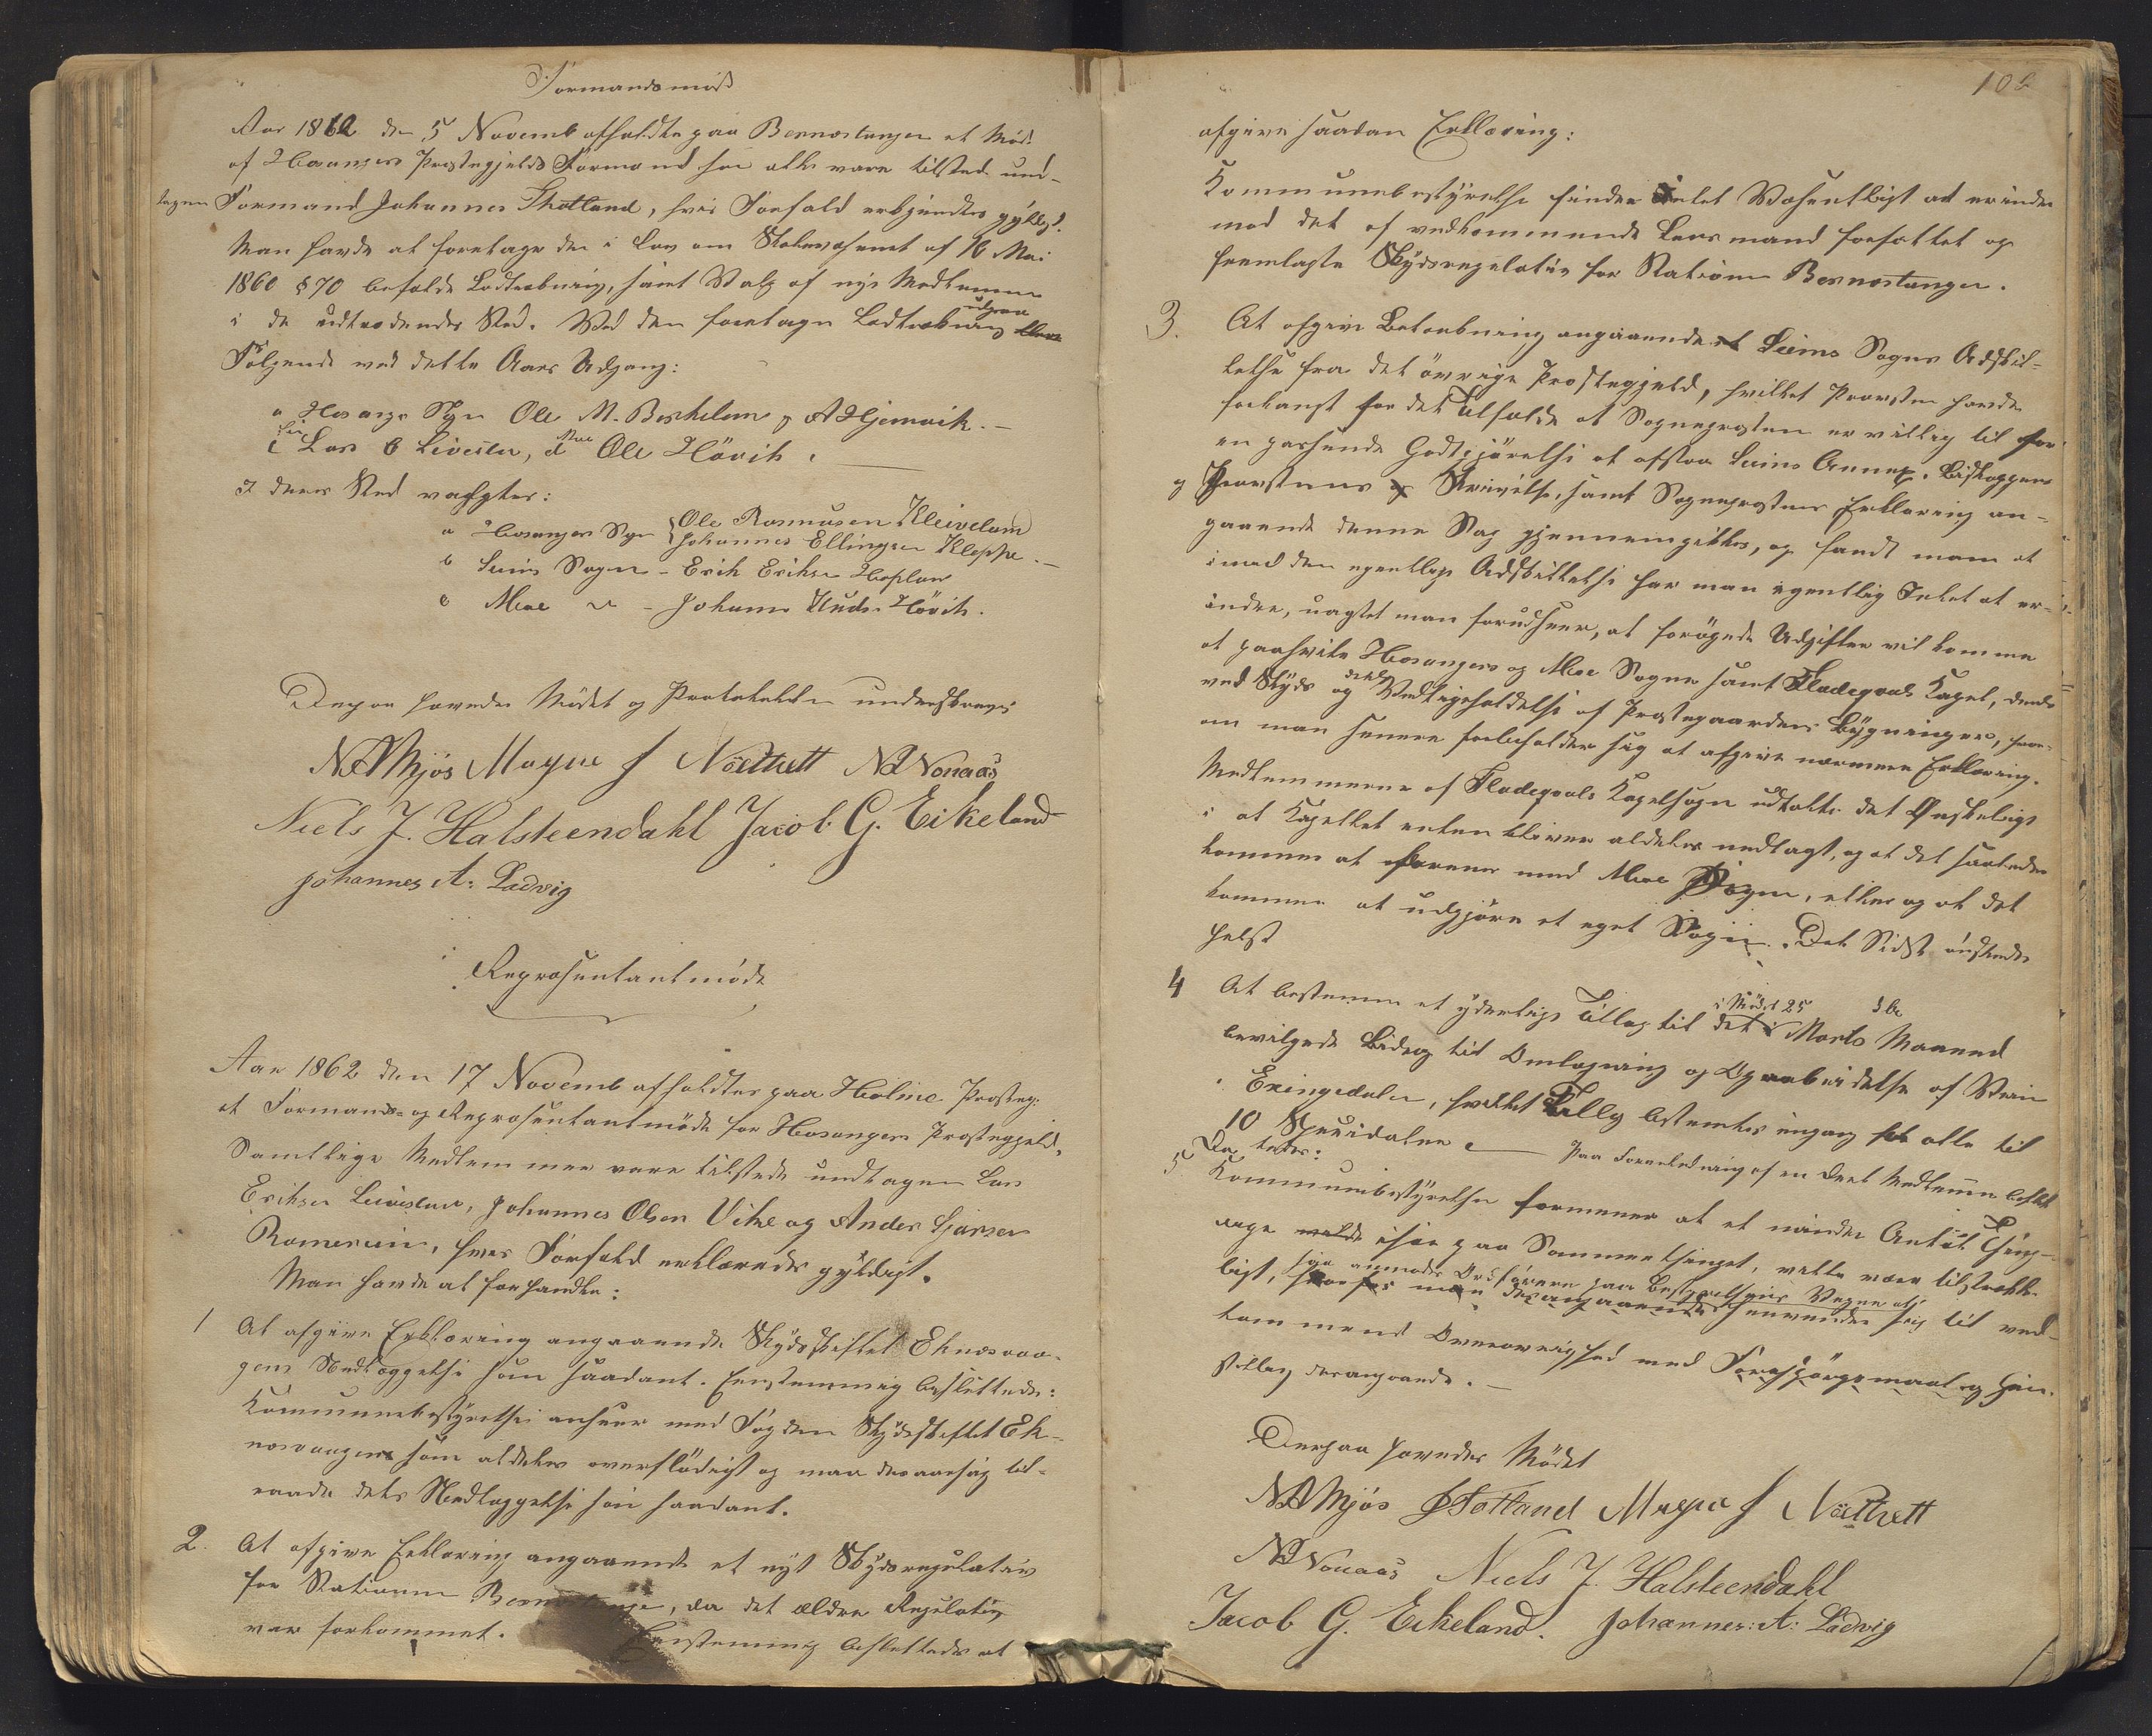 Formandsmöde
Aar 1862 den 5 Novemb afholdtes paa Bernestangen et Möde
af Hosangers Præstegjelds Formænd hvor alle vare tilstede und-
tagen Formand Johannes Skotland, hvis Forfald erkjendtes gyldigt.
Man havde at foretage den i Lov om Skolevæsenet af 16 Mai
1860 § 70 befalede Lodtrækning, samt Valg af nye Medlemmer
i de udtrædendes Sted. Ved den foretagne Lodtrækning udgaar
Følgende ved dette Aars Udgang:
a Hosanger Sogn Ole M. Boshelem og A Hjemvik.
Lars E Leivestø, Ole Hövik.
I deres Sted valgtes:
a Hosangers Sogn Ole Rasmusen Kleiveland
Johannes Ellingsen Kleppe.
b Seims Sogn - Erik Eriksen Hoplan
c Moe - Johannes Knuds. Hövik.
Derpaa hævedes Mödet og Protokollen underskreves
N A Mjös Magne J Nöettvett N N Vonaas
Niels J. Halsteendahl Jacob G. Eikeland
Johannes A: Ladvig
Repræsentantmöde
Aar 1862 den 17 Novemb afholdtes paa Holme Præsteg:
et Formands- og Repræsentantmöde for Hosangers Præstegjeld,
Samtlige Medlemmer vare tilstede undtagen Lars
Eriksen Leivestø, Johannes Olsen Vike og Anders
Romerein, hvis Forfald erklæredes gyldigt.
Man havde at forhandle:
1 At afgive Erklæring angaaende Skydsskiftet Eknesvaa-
gens Nedlæggelse som saadant. Eenstemmig besluttede:
Kommunebestyrelsen anseer med Fogden Skydsskiftet Ek-
nesvaagen som aldeles overflödigt og maa desaarsag til-
raade dets Nedlæggelse som saadant.
2. At afgive Erklæring angaaende et nyt Skydsregulativ
for Stationen Bernestangen, da det ældre Regulativ
var forkommet. Eenstemmig besluttedes at
102
afgive saadan Erklæring:
Kommunebestyrelsen finder Intet Væsentligt at erindre
mod det af vedkommende Lensmand forfattet og
fremlagte Skydsregulativ for Stationen Bernestangen.
3. At afgive Betænkning angaaende Seims Sogns Adskil-
lelse fra det övrige Præstegjeld, hvilket Provsten havde
forlangt for det Tilfælde at Sognepræsten er villig til for
en passende Godtgjörelse at afstaa Seims Annex. Biskoppens
og Provstens Skrivelse, samt Sognepræstens Erklæring an-
gaaende denne Sag gjennemgikkes, og fandt man at
imod den egentlige Adskillelse har man egentlig Intet at er-
indre, uagtet man forudseer, at forögede Udgifter vil komme
at paahvile Hosangers og Moe Sogne samt Fladegvals Kapel, deels
ved Skyds og deels Vedligeholdelse af Præstegaardens Bygninger, hvor-
om man senere forbeholder sig at afgive nærmere Erklæring.
Medlemmerne af Fladegvals Kapelsogn udtalte det Ønskelige
i at Kapellet enten bliver aldeles nedlagt, og at det saaledes
kommer at forenes med Moe Sogn, eller og at det
kommer at udgjöre et eget Sogn. Det Sidste önskedes
helst
4 At bestemme et yderlige Tillæg til det i Mödet 25 Marts Maaned
bevilgede Bidrag til Omlægning og Oparbeidelse af Veien
i Exingedalen, hvilket Tillæg bestemtes engang for alle til
10 Speciedaler. Paa Foranledning af en Deel Medlemmer
5 Kommunebestyrelsen formener at et mindre Antal Thing-
dage især paa Sommerthinget, vilde være tilstrække-
ligt, saa anmodes Ordföreren paa Bestyrelsens Vegne at henvende sig til ved-
kommende Överövrighed med Forespörgsmaal og Hen-
stilling desangaaende.
Derpaa hævedes Mödet
N A Mjös J Skotland Magne J Nöettvett
N N Vonaas Niels J. Halsteendahl
Jacob G. Eikeland. Johannes: A: Ladvig